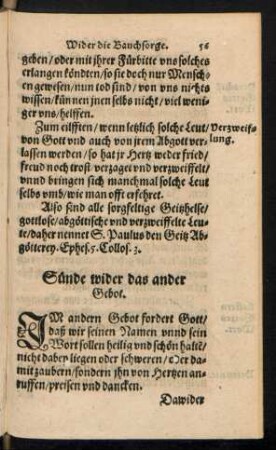 Wider die Bauchsorge. 56
geben / oder mit jhrer Fürbitte vns solches
erlangen köndten / so sie doch nur Mensch-
en gewesen / nun tod sind / von vns nichts
wissen / künnen jnen selbs nicht / viel weni-
ger vns / helffen.
Zum eilfften / wenn letzlich solche Leut
von Gott vnd auch von jrem Abgott ver-
lassen werden / so hat jr Hertz weder fried /
freud noch trost verzaget vnd verzweiffelt /
vnnd bringen sich manchmal solche Leut
selbs vmb / wie man offt erfehret.
Verzweif-
lung.
Also sind alle sorgfeltige Geitzhelse /
gottlose / abgöttische vnd verzweiffelte Leu-
te / daher nennet S. Paulus den Geitz Ab-
götterey. Ephes. 5. Collos. 3.
Sünde wider das ander
Gebot.
IM andern Gebot fordert Gott /
daß wir seinen Namen vnnd sein
Wort sollen heilig vnd schön halte /
nicht dabey liegen oder schweren / Oder da-
mit zaubern / sondern jhn von Hertzen an-
ruffen / preisen vnd dancken.
Dawider